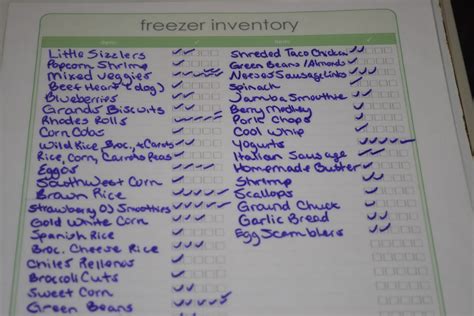 freezer inventory
Item
Little Sizzlers
Popcorn Shrimp
Mixed Veggies
Beef Heart (dog)
Blueberries
Grands Biscuits
Rhodes Rolls
Corn Cobs
Wild Rice, Broc, + Carrots
Rice, Corn, Carrots, Peas
Eggos
Southwest Corn
Brown Rice
Strawberry OJ Smoothies
Gold White Corn
Spanish Rice
Broc. Cheese Rice
Chiles Rellenos
Broccoli Cuts
Sweet Corn
Green Beans
Item
Shreded Taco Chicken
Green Beans/Almonds
Sausage Links
Spinach
Jamba Smoothie
Berry Medley
Pork Chops
Cool Whip
Yogurts
Italian Sausage
Homemade Butter
Shrimp
Scallops
Ground Chuck
Garlic Bread
Egg Scramblers